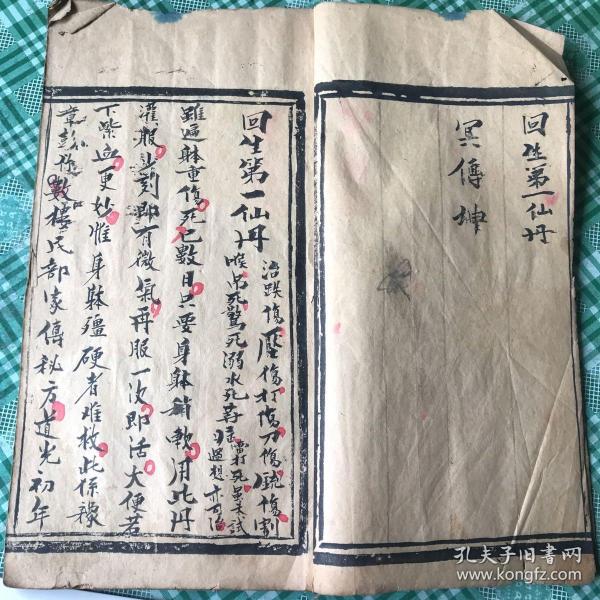 回生第一仙丹
傳坤
回生第一仙丹
治跌傷壓傷打傷刀傷銃傷割
喉吊死驚死溺水死
雖遍躰重傷死已數日只要身躰稍軟用此丹
灌服立刻即有微氣再服一次即活大便若
下柴血更妙惟身躰殭硬者难救此係
數樣氏部家傳秘方道光初年
孔夫子旧书网
www.kongfz.com